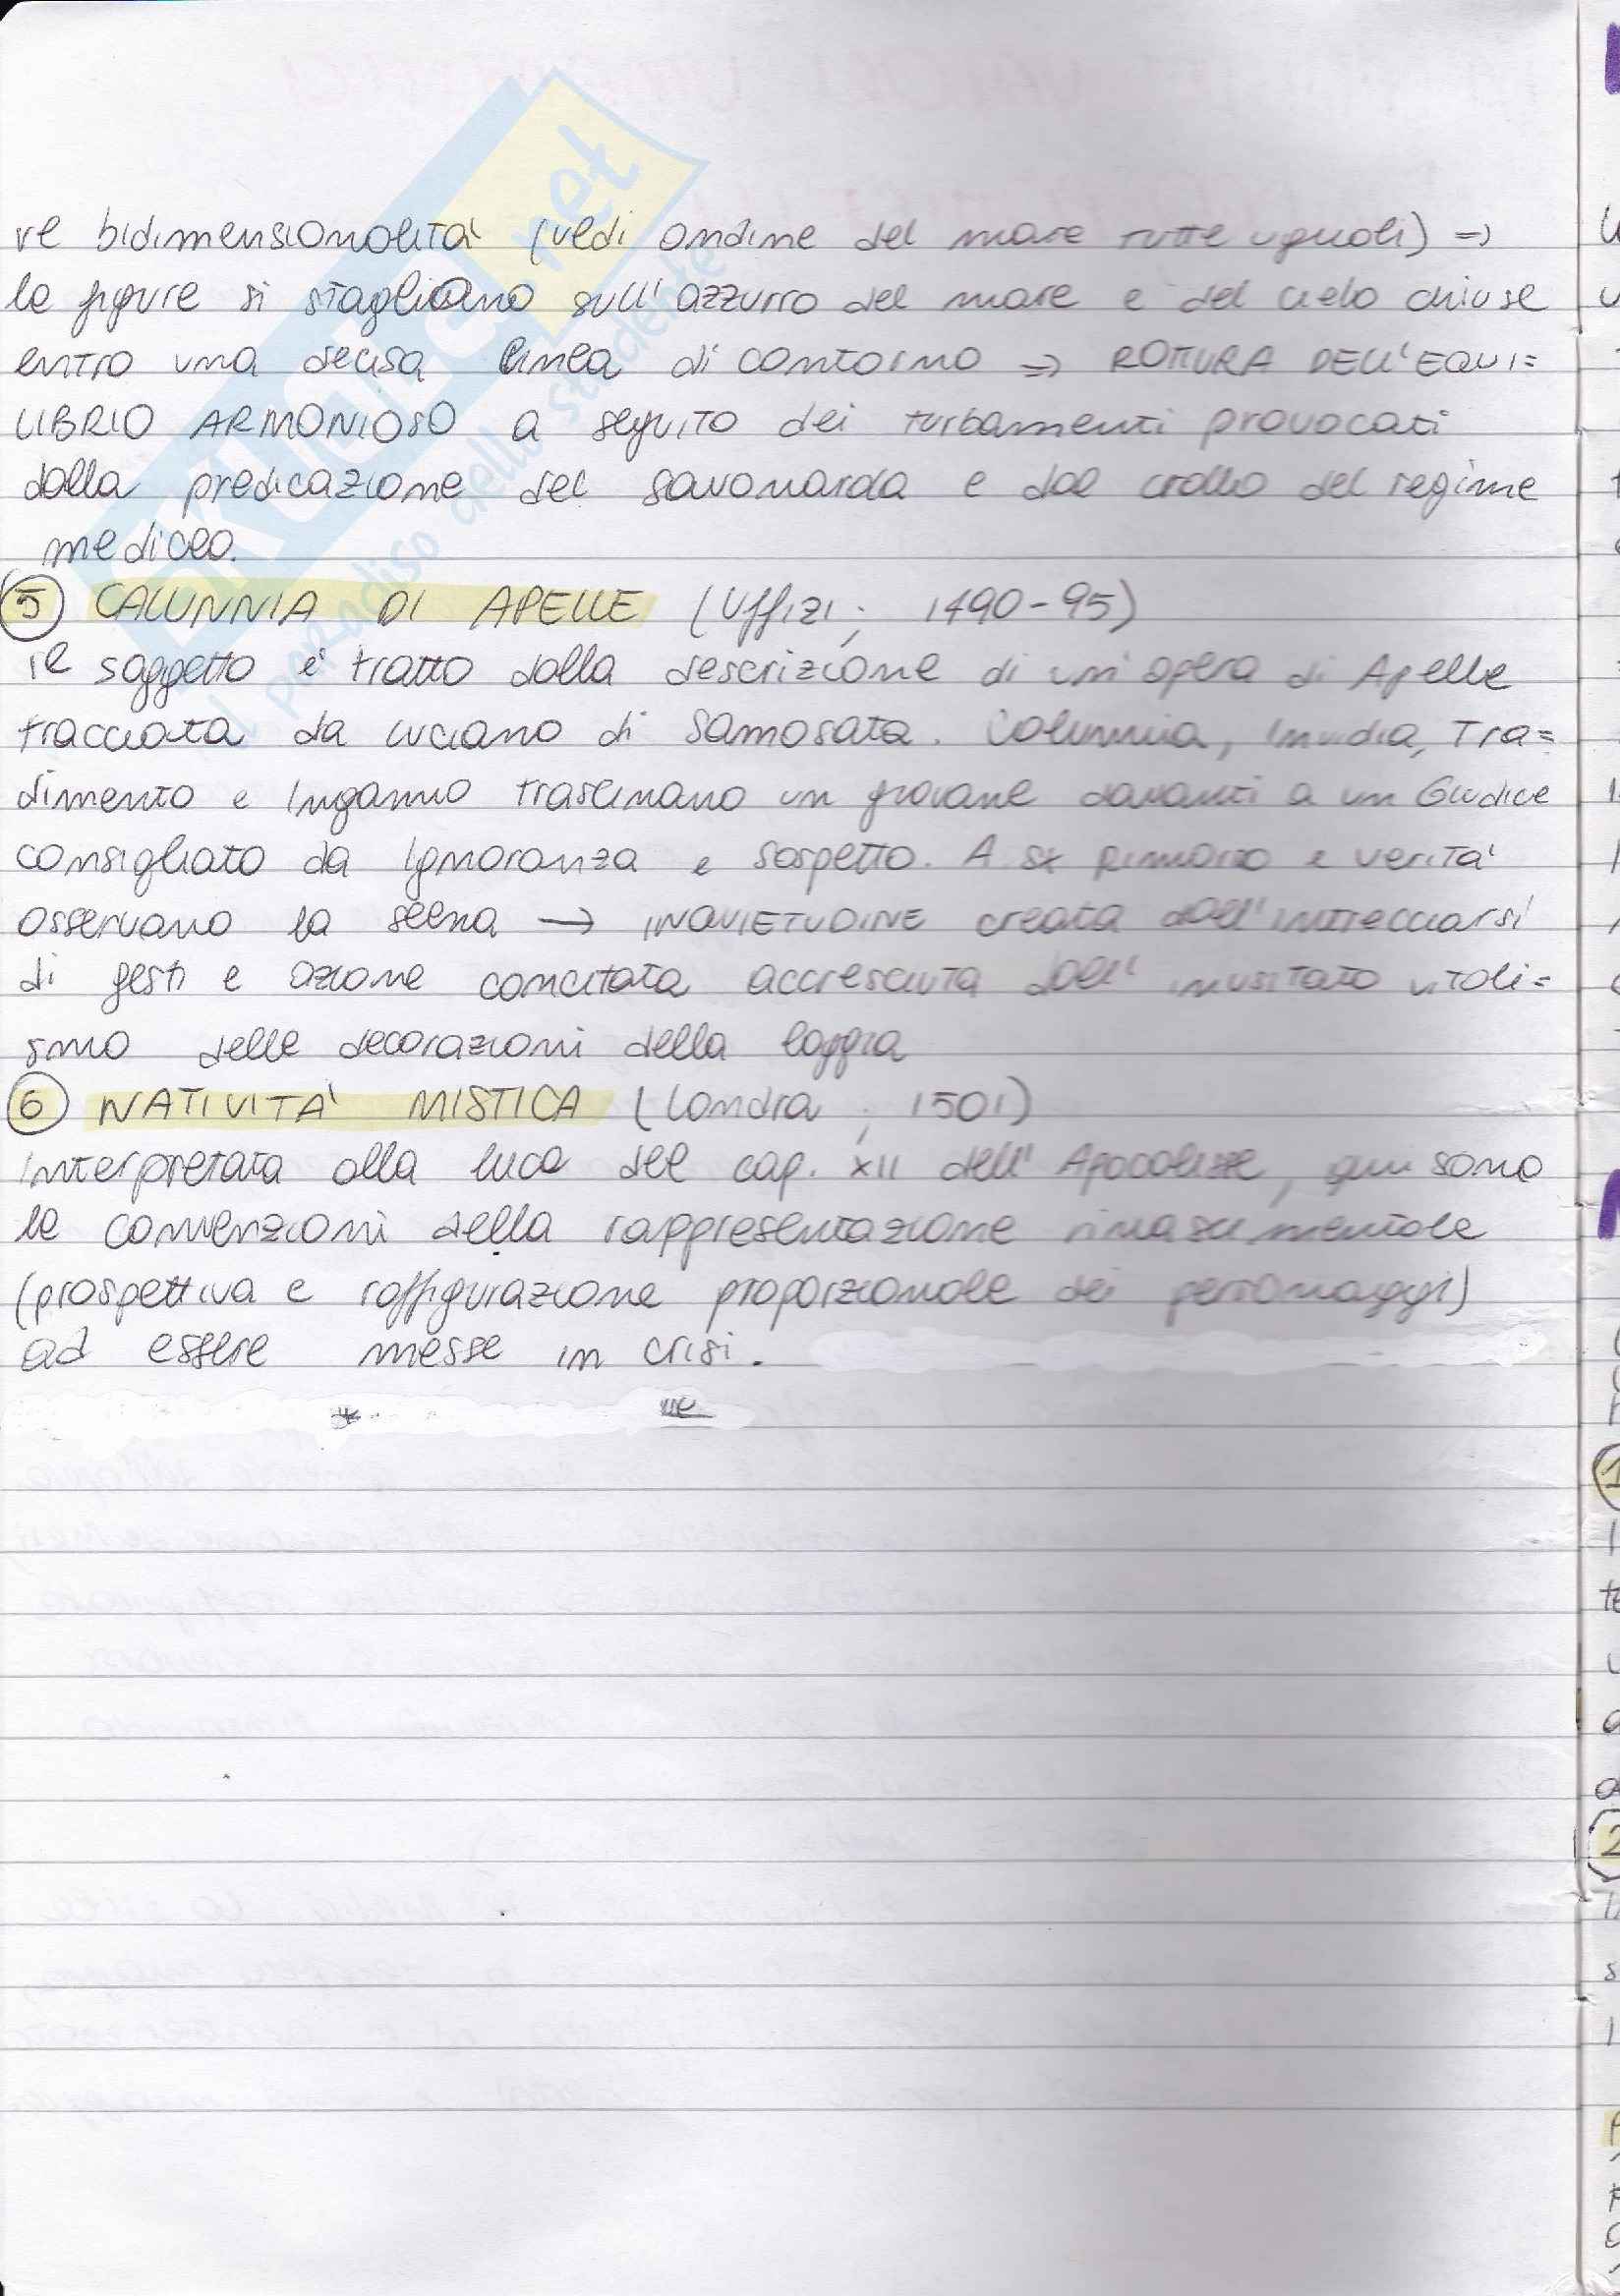 re bidimensionalità (vedi ondine del mare tutte uguali) =>
le figure si stagliano sull'azzurro del mare e del cielo chiuse
entro una decisa linea di contorno => ROTTURA DELL'EQUI=
LIBRIO ARMONIOSO a seguito dei turbamenti provocati
dalla predicazione del Savonarola e dal crollo del regime
mediceo.
5 CALUNNIA DI APELLE (Uffizi; 1490-95)
Il soggetto è tratto dalla descrizione di un'opera di Apelle
tracciata da Luciano di Samosata. Calunnia, Invidia, Tra=
dimento e Inganno trascinano un giovane davanti a un Giudice
consigliato da Ignoranza e Sospetto. A sx Rimorso e Verità
osservano la scena → INQUIETUDINE creata dall'intrecciarsi
di gesti e azione concitata accresciuta dall'inusitato vitali=
smo delle decorazioni della loggia
6 NATIVITA' MISTICA (Londra; 1501)
Interpretata alla luce del cap. XII dell'Apocalisse, qui sono
le convenzioni della rappresentazione rinascimentale
(prospettiva e raffigurazione proporzionale dei personaggi)
ad essere messe in crisi.
il paradiso dello studente
.net